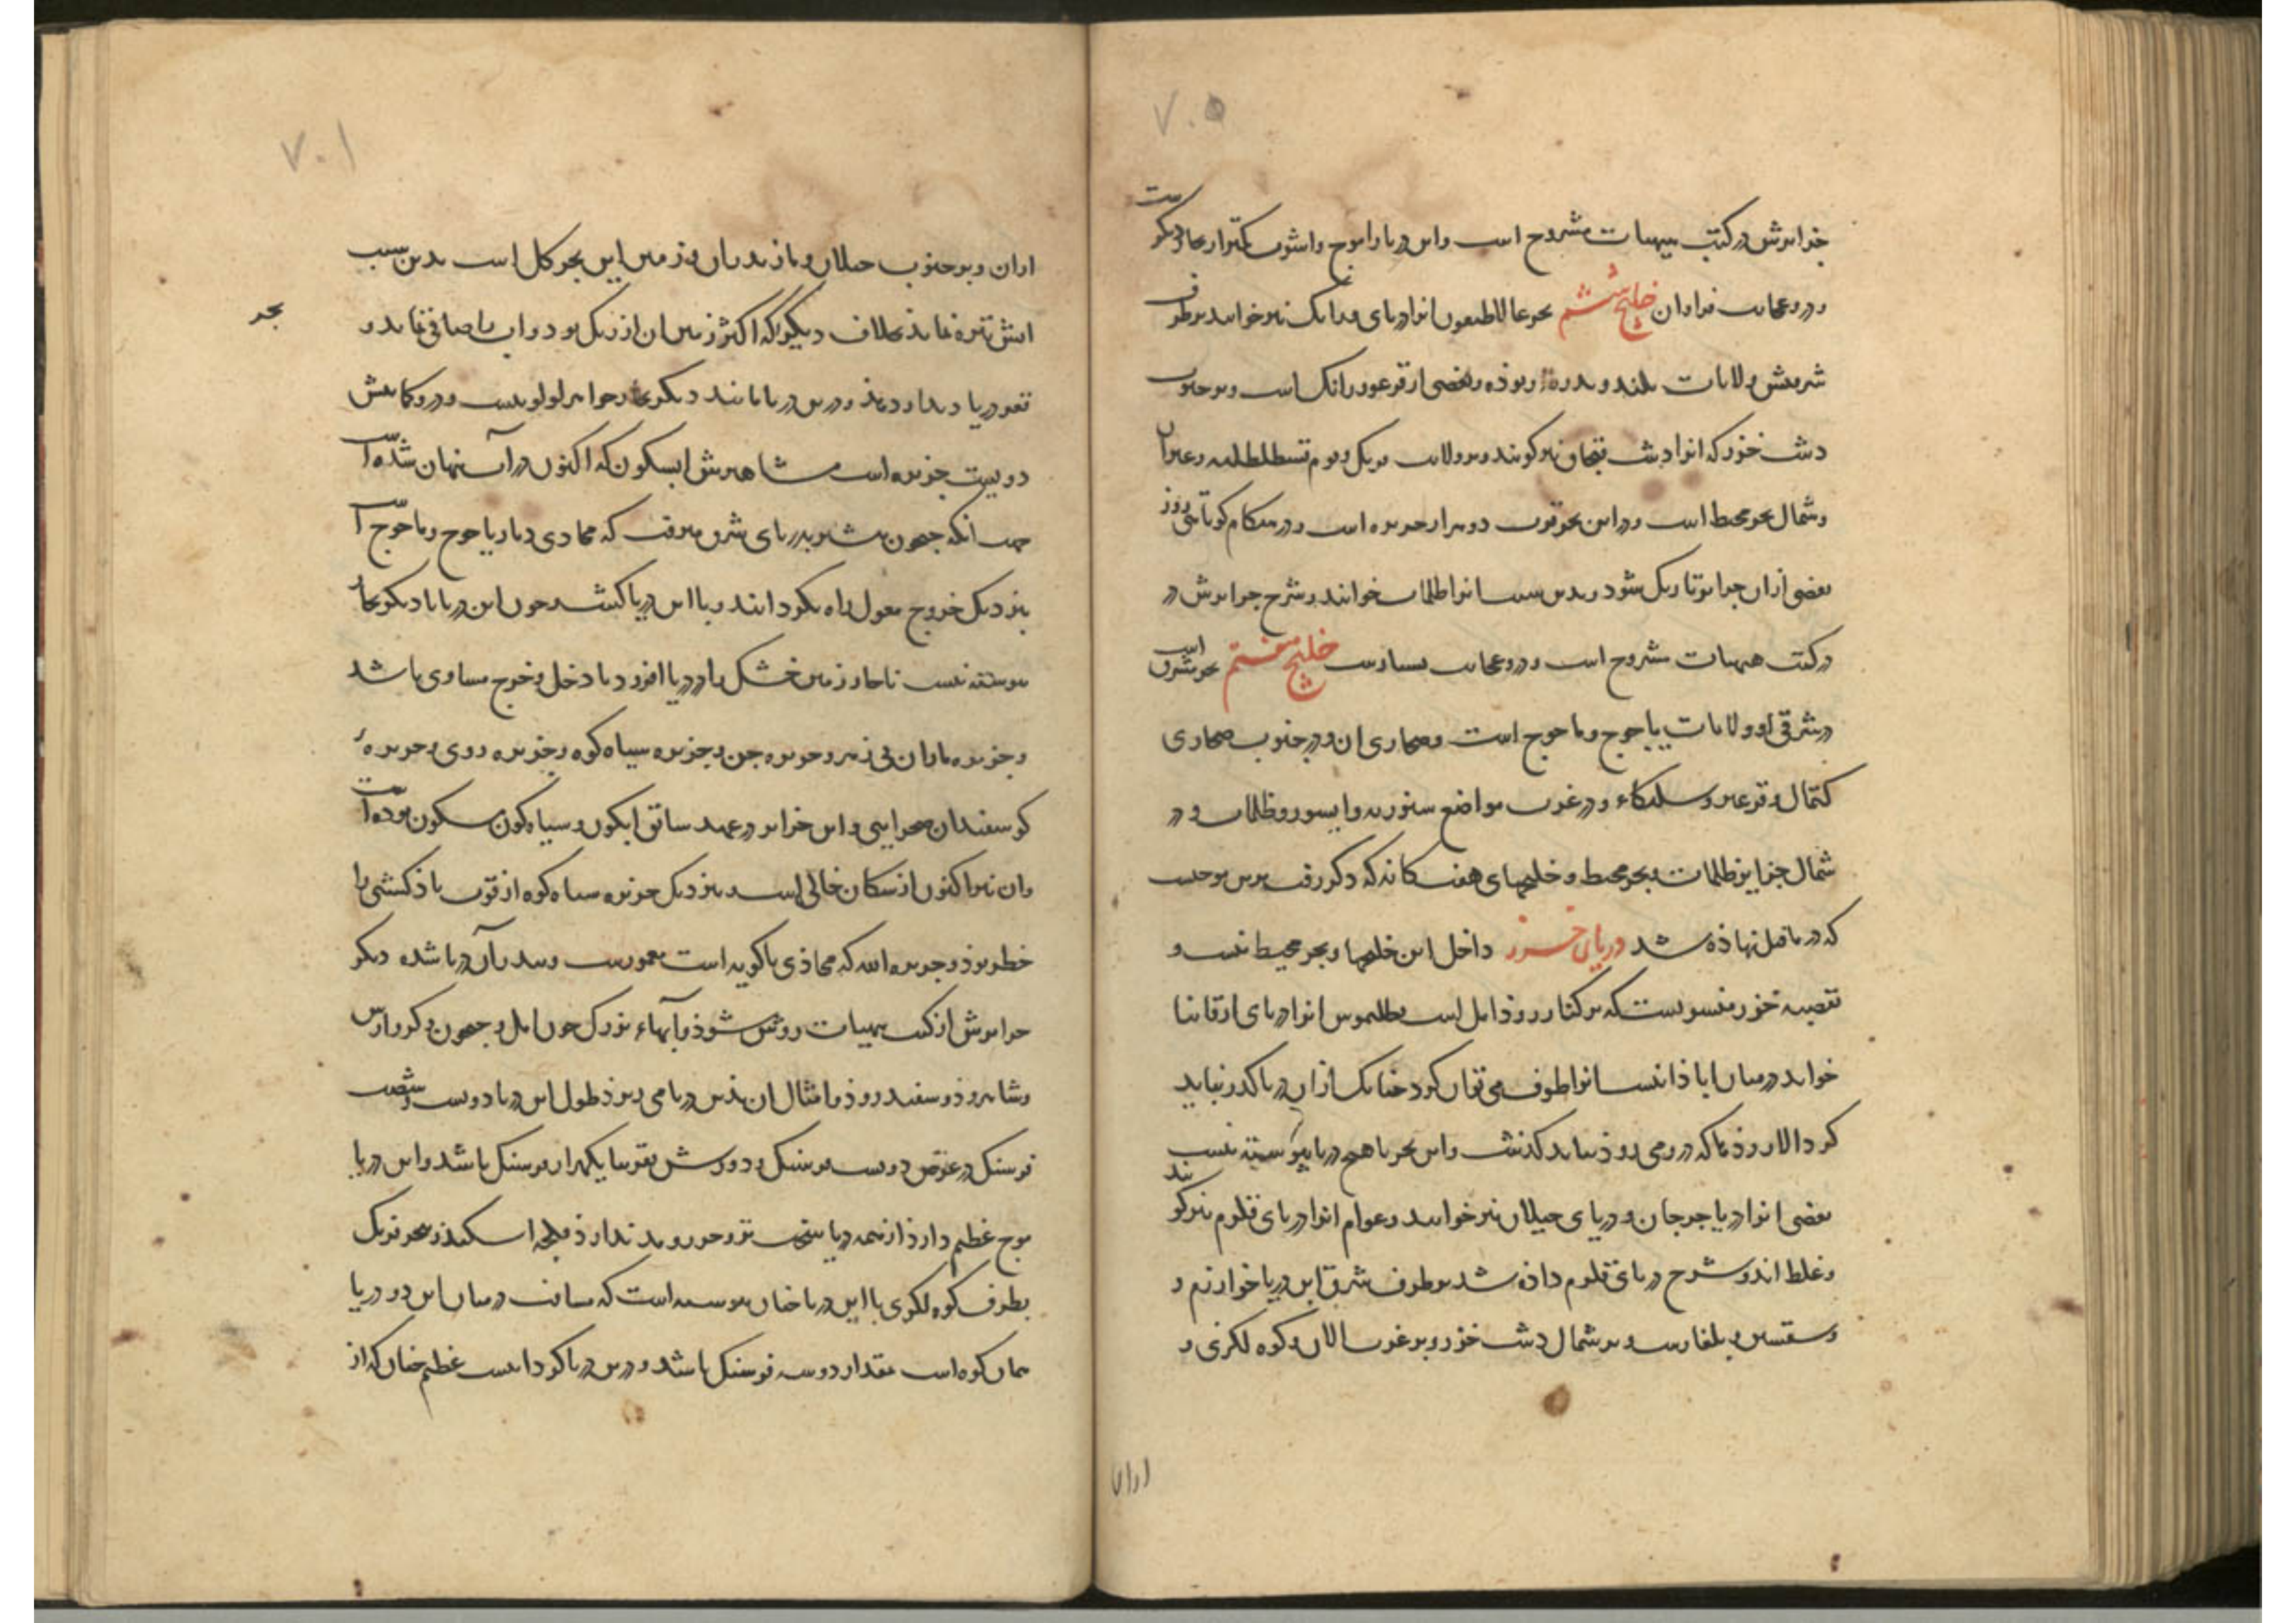 جزایرش در کتب هیهات مشروح است واین دریا را موج واشوب کمتر از بحار دیگرست
ودرو عجایب فراوان خلیج ششم بحر غالاطیقون انرا دریای ورانک نیز خوانند بر طرف
شرقیش ولایات بلند و بوده وبعضی از ورانک است وبر جنوب
دشت خزر که انرا دشت قبچاق نیز کویند وبر ولایت فرنک وروم قسطنطنیه وغیران
وشمال بحر محیط است ودر این بحر قرب دو هزار جزیره است ودر هنکام کوتاهی روز
بعضی ازان جزایر تاریک شود وبدین سبب انرا ظلمات خوانند وشرح جزایرش در
در کتب هیهات مشروح است ودرو عجایب بسیارست خلیج هفتم بحر مشرق است
در شرقی او ولایات یاجوج وماجوج است وصحاری ان ودر جنوب صحاری
کتمال ودر غرب مواضع وظلمات ودر
شمال جزایر ظلمات وبحر محیط وخلیجهای هفت کانه که ذکر رفت برین موجب
که در ما قبل نهاده شد دریای خزر داخل این خلیجها وبحر محیط نیست و
بقصبه خزر منسوبست که بر کنار رود اتل است بطلمیوس انرا دریای ارقانیا
خواند در میان ابادانیست انرا طوف می توان کرد چنانک ازان دریا کذر نباید
کرد الا رودها که درومی رود بباید کذشت واین بحر با هیچ دریا پیوسته نیست
بعضی انرا دریا جرجان ودریای جیلان نیز خوانند وعوام انرا دریای قلزم نیز کویند
وغلط اند وشرح دریای قلزم داده شد بر طرف شرقی این دریا خوارزم و
وسقسین وبلغارست وبر شمال دشت خزر وبر غرب الان وکوه لکزی و
اران
اران وبر جنوب جیلان ومازندران وزمین این بحر کل است بدین سبب
ابش تیره نماید بخلاف دیگر که اکثر زمین ان از ریک بود واب صافی نماید و
بحر
قعر دریا دیدار دهد ودرین دریا مانند دیگر بحار جواهر لولو نیست ودرو کمابیش
دویست جزیره است مشاهیرش ابسکون که اکنون در آب پنهان شده است
جهت انکه جیحون پیشتر بدریای شرقی میرفت که محاذی دیار یاجوج وماجوج است
بنزدیک خروج مغول راه بکردانید وبا این دریا کشید چون این دریا با دیکر بحار
پیوسته نیست ناچار زمین خشک را در دریا افزود تا دخل وخرج مساوی باشد
وجزیره ماران بی زهر وجزیره جن وجزیره سیاه کوه وجزیره روی وجزیره
کوسفندان صحرایی واین جزایر در عهد سابق ابکون وسیاه کون مسکون بوده است
وان نیز اکنون از سکان خالی است بنزدیک جزیره سیاه کوه از قوت باد کشتی را
خطر بود وجزیره الله که محاذی باکویه است معمورست وبندر آن دریا شده دیکر
جزایرش از کتب هیهات روشن شود وآبهاء بزرک چون اتل وجیحون وکر وارس
وشاهرود وسفیدرود وامثال ان بدین دریا می ریزد طول این دریا دویست وشصت
فرسنک در عرض دویست فرسنک ودورش تقریبا یکهزار فرسنک باشد واین دریا
موج عظیم دارد از همه دریا سخت تر وجزر ومد ندارد
بطرف کوه لکزی با این دریا چنان پیوسته است که مسافت در میان این دو دریا
همان کوه است مقدار دو سه فرسنک باشد ودرین دریا کردابیست عظیم چنان که از